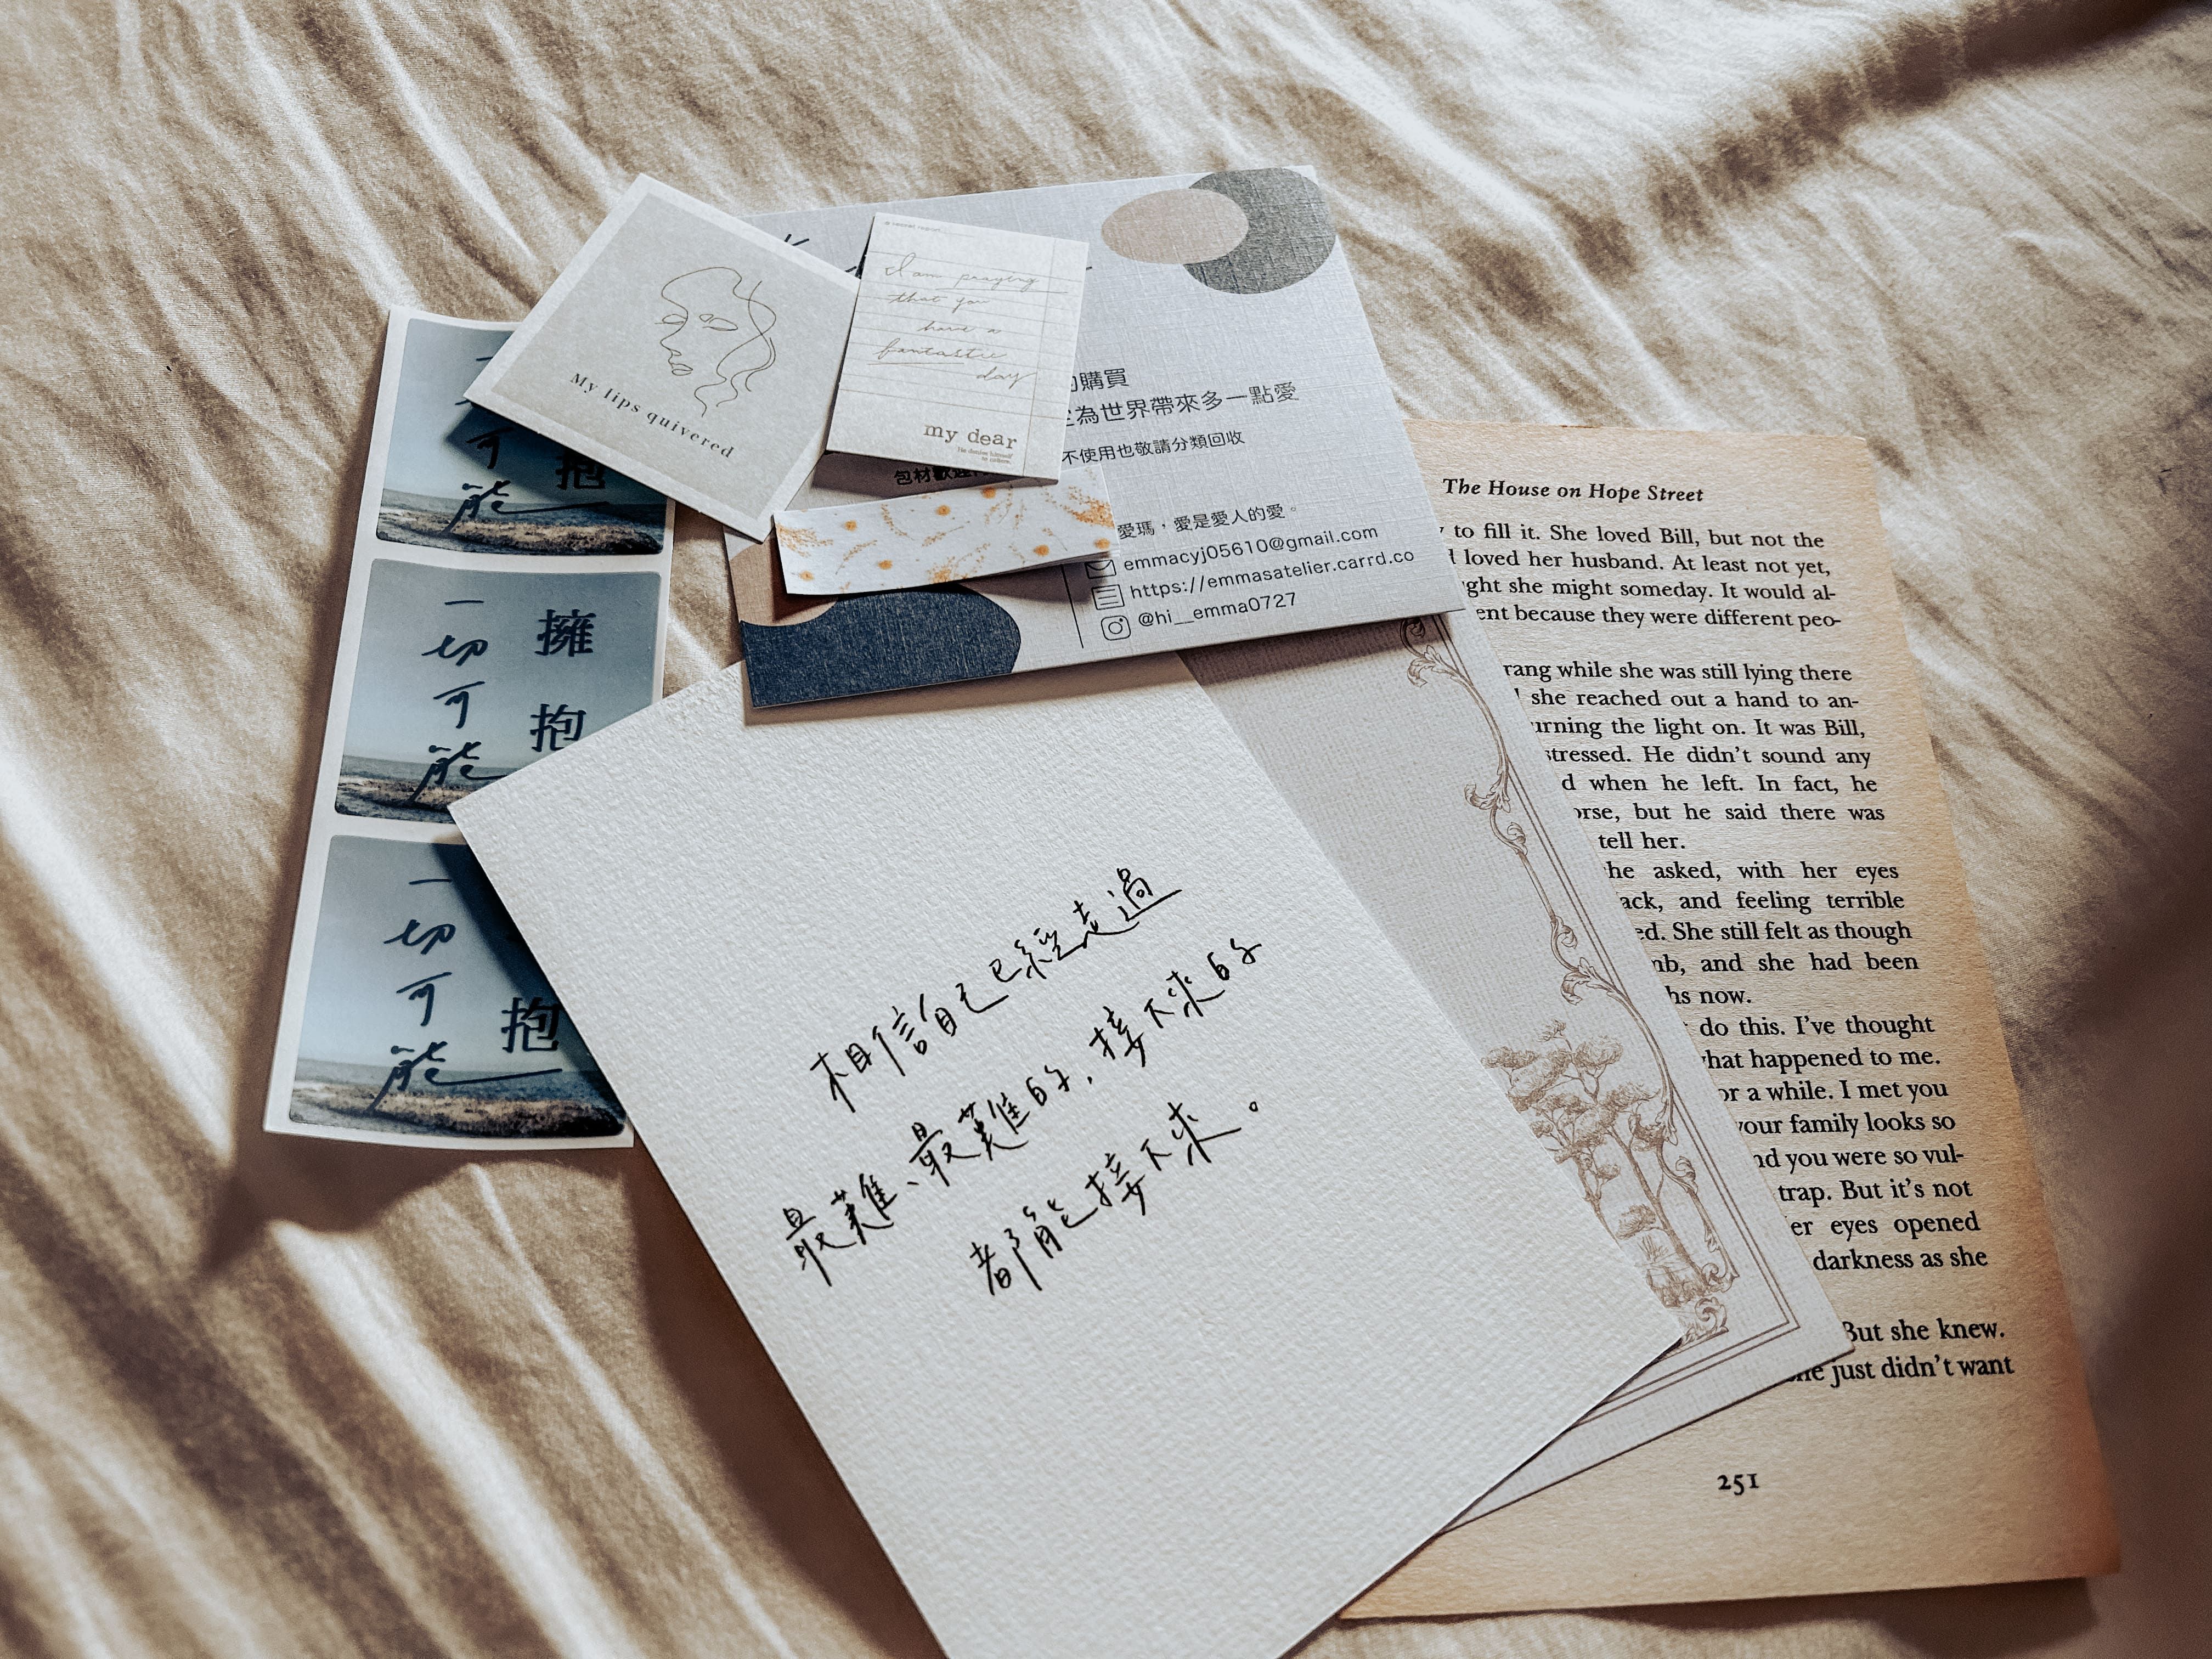 My lips quivered
I am praying
that you
have a
fantastic
day
my dear
購買
為世界帶來多一點愛
不使用也敬請分類回收
包材歡迎
愛瑪，愛是愛人的愛。
emmacyj05610@gmail.com
https://emmasatelier.carrd.co
@hi__emma0727
抱
可
能
擁抱
一切可能
抱
一切可能
相信自己已經走過
最難、最難的，接下來的
都能接下來。
The House on Hope Street
to fill it. She loved Bill, but not the
loved her husband. At least not yet,
she might someday. It would al-
because they were different peo-
rang while she was still lying there
she reached out a hand to an-
the light on. It was Bill,
He didn't sound any
when he left. In fact, he
but he said there was
tell her.
asked, with her eyes
and feeling terrible
She still felt as though
and she had been
now.
do this. I've thought
what happened to me.
for a while. I met you
your family looks so
and you were so vul-
trap. But it's not
eyes opened
darkness as she
But she knew.
just didn't want
251